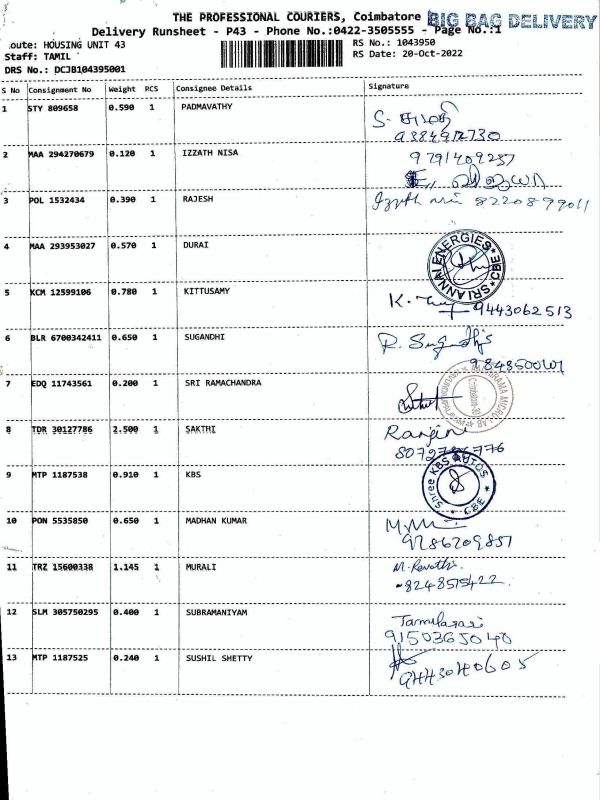 THE PROFESSIONAL COURIERS, Coimbatore BIG BAG DELIVERY
Delivery Runsheet - P43 - Phone No.:0422-3505555 - Page No.:1
oute: HOUSING UNIT 43 RS No.: 1043950
Staff: TAMIL RS Date: 20-Oct-2022
DRS No.: DCJB104395001
S No Consignment No Weight PCS Consignee Details Signature
1 STY 809658 0.590 1 PADMAVATHY
2 MAA 294270679 0.120 1 IZZATH NISA 9791409237
3 POL 1532434 0.390 1 RAJESH 8220899011
4 MAA 293953027 0.570 1 DURAI
SRI ANNAI ENERGIES * CBE *
5 KCM 12599106 0.780 1 KITTUSAMY
K. 9443062513
6 BLR 6700342411 0.650 1 SUGANDHI
R. Sugandhi
7 EDQ 11743561 0.200 1 SRI RAMACHANDRA
8 TDR 30127786 2.500 1 SAKTHI
Ranjini
9 MTP 1187538 0.910 1 KBS
Shree KBS AUTOS * CBE *
10 PON 5535850 0.650 1 MADHAN KUMAR
9786209851
11 TRZ 15600338 1.145 1 MURALI
M. Revathi
8248515422
12 SLM 305750295 0.400 1 SUBRAMANIYAM
Tamilarasi
9150365040
13 MTP 1187525 0.240 1 SUSHIL SHETTY
9443040605